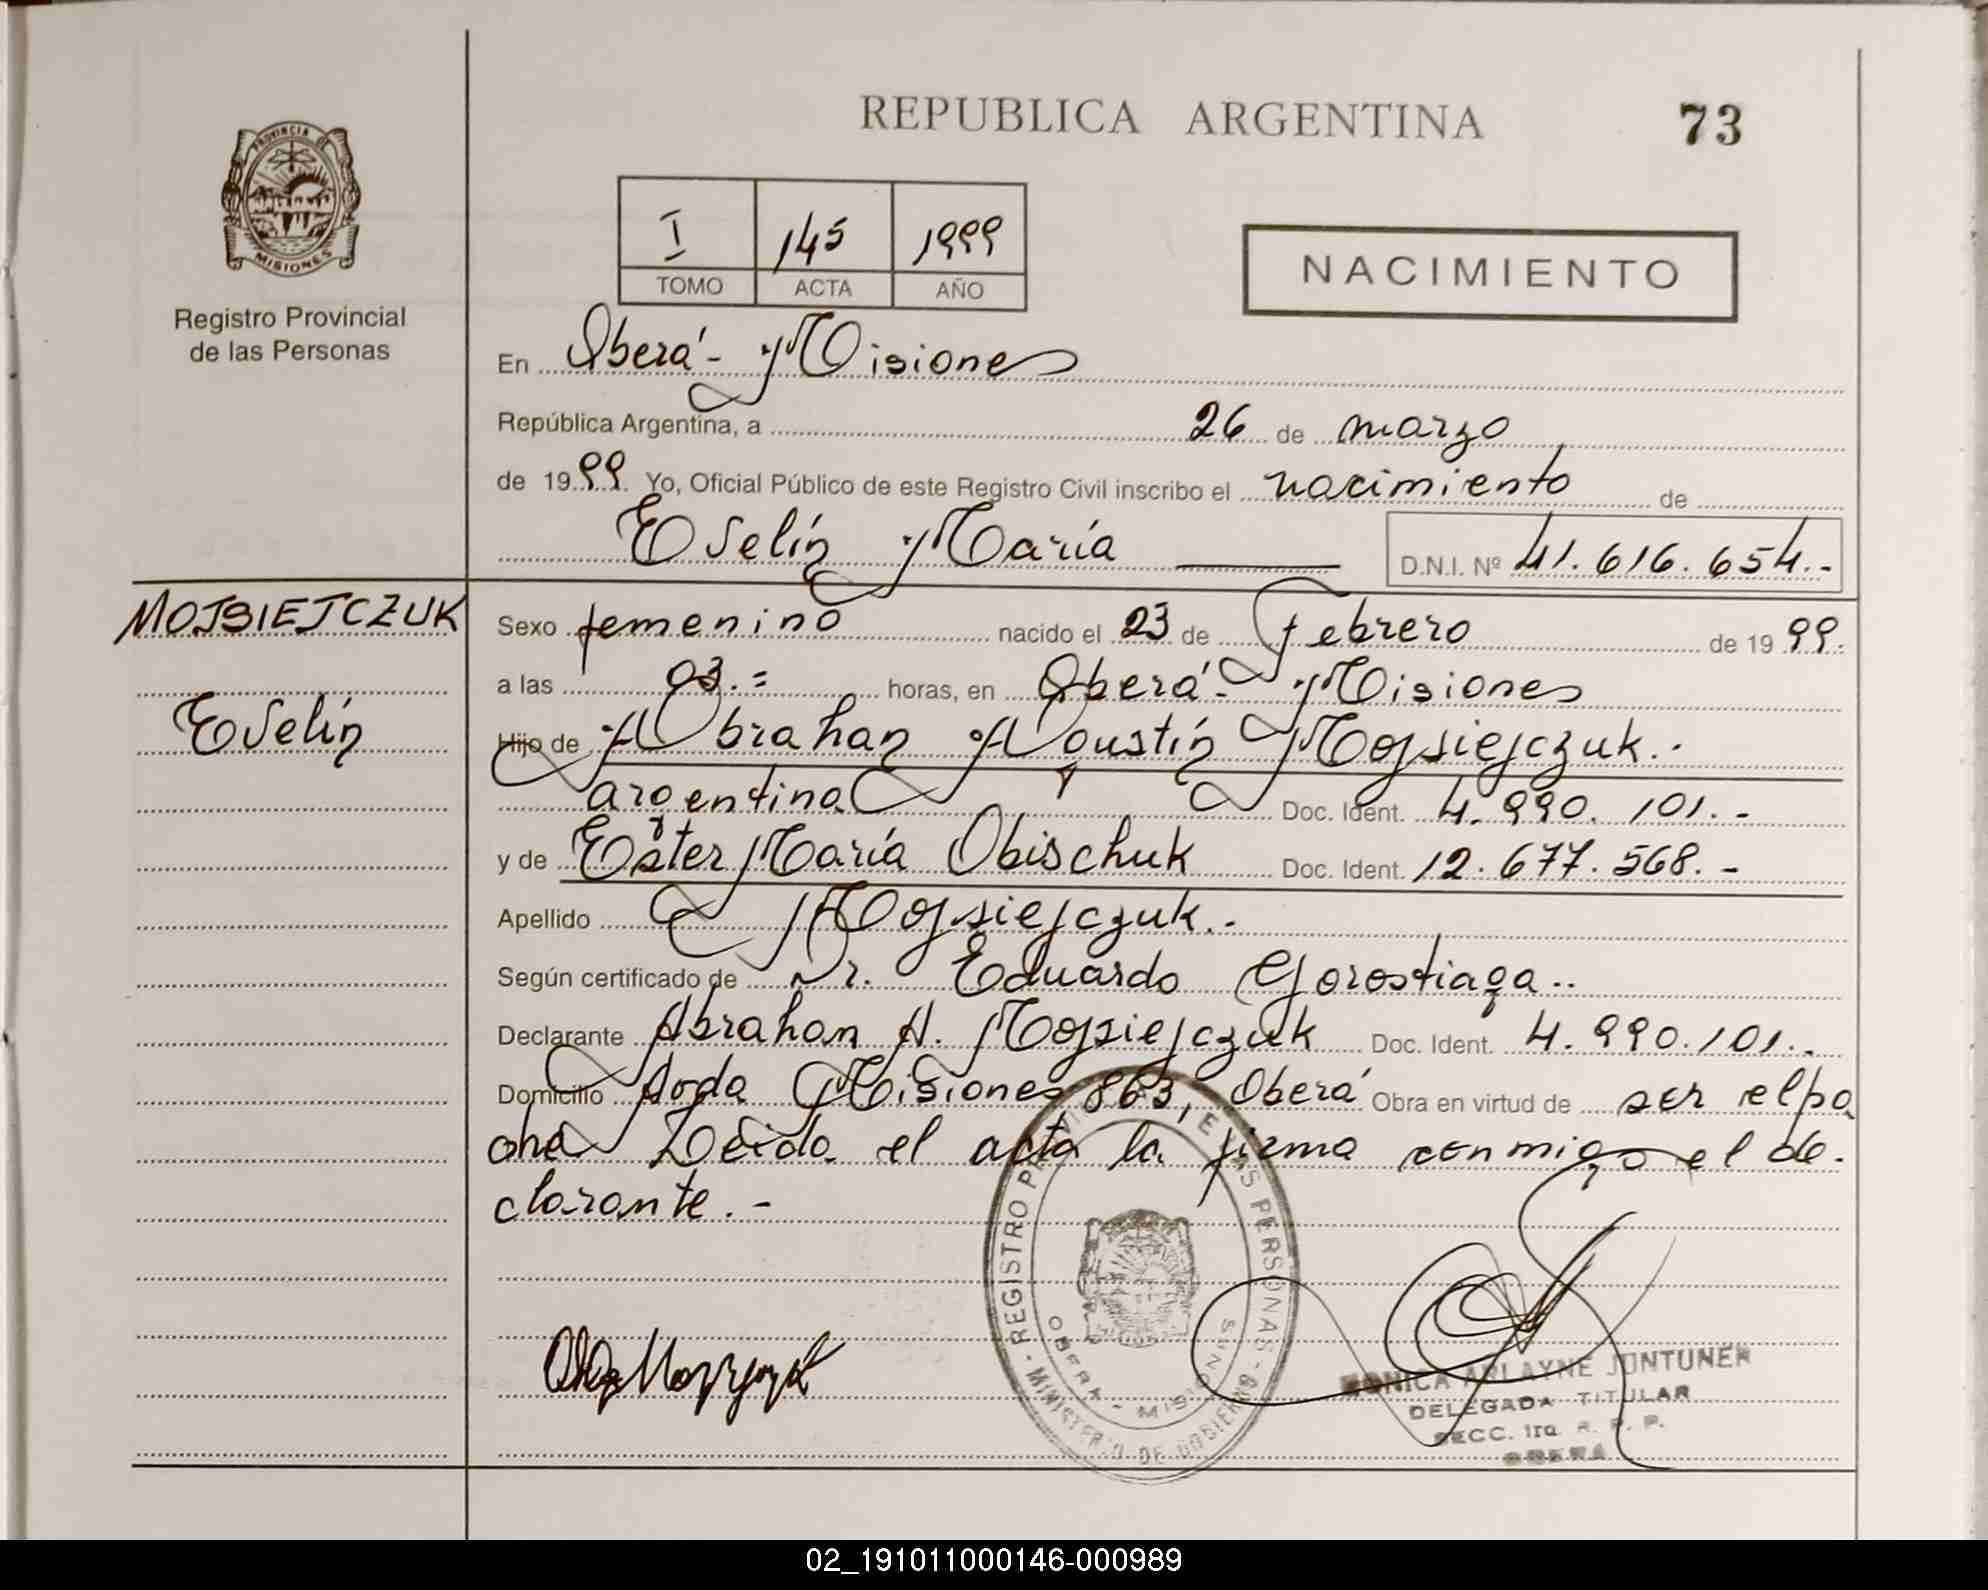 REPUBLICA ARGENTINA
73
PROVINCIA DE
MISIONES
Registro Provincial
de las Personas
I 145 1999
TOMO ACTA AÑO
NACIMIENTO
En Oberá - Misiones
República Argentina, a 26 de marzo
de 1999 Yo, Oficial Público de este Registro Civil inscribo el nacimiento de
Evelín María D.N.I. Nº 41.616.654.-
MOJSIEJCZUK
Evelín
Sexo femenino nacido el 23 de Febrero de 1999.
a las 03.= horas, en Oberá - Misiones
Hijo de Abrahan Agustín Mojsiejczuk.-
argentina Doc. Ident. 4.990.101.-
y de Ester María Obischuk Doc. Ident. 12.677.568.-
Apellido Mojsiejczuk.-
Según certificado de Dr. Eduardo Gorostiaga..
Declarante Abrahan A. Mojsiejczuk Doc. Ident. 4.990.101.-
Domicilio Avda Misiones 863, Oberá Obra en virtud de ser el pa
dre Leida el acta la firma conmigo el de-
clarante.-
REGISTRO PROVINCIAL DE LAS PERSONAS - MINISTERIO DE GOBIERNO
OBERA - MISIONES
MONICA ARLAYNE JUNTUNEN
DELEGADA TITULAR
SECC. 1ra R. P. P.
OBERA
02_191011000146-000989